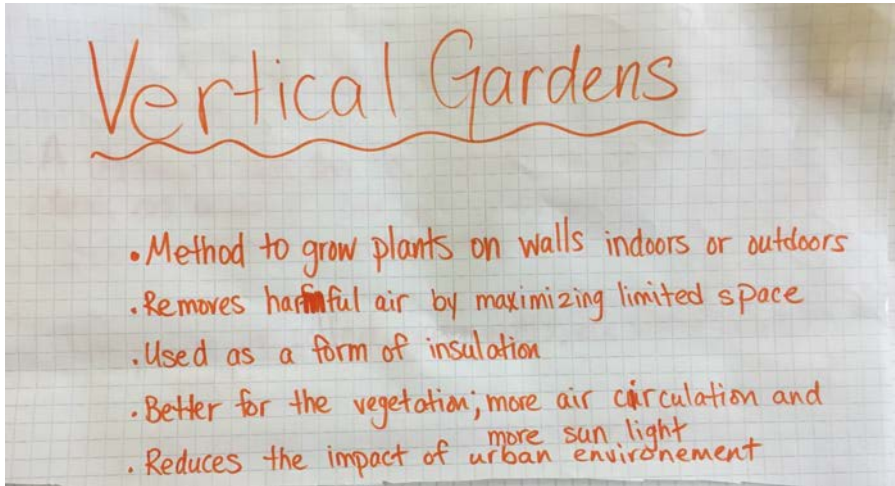 Vertical Gardens
• Method to grow plants on walls indoors or outdoors
• Removes harmful air by maximizing limited space
• Used as a form of insulation
• Better for the vegetation; more air circulation and
more sun light
• Reduces the impact of urban environement